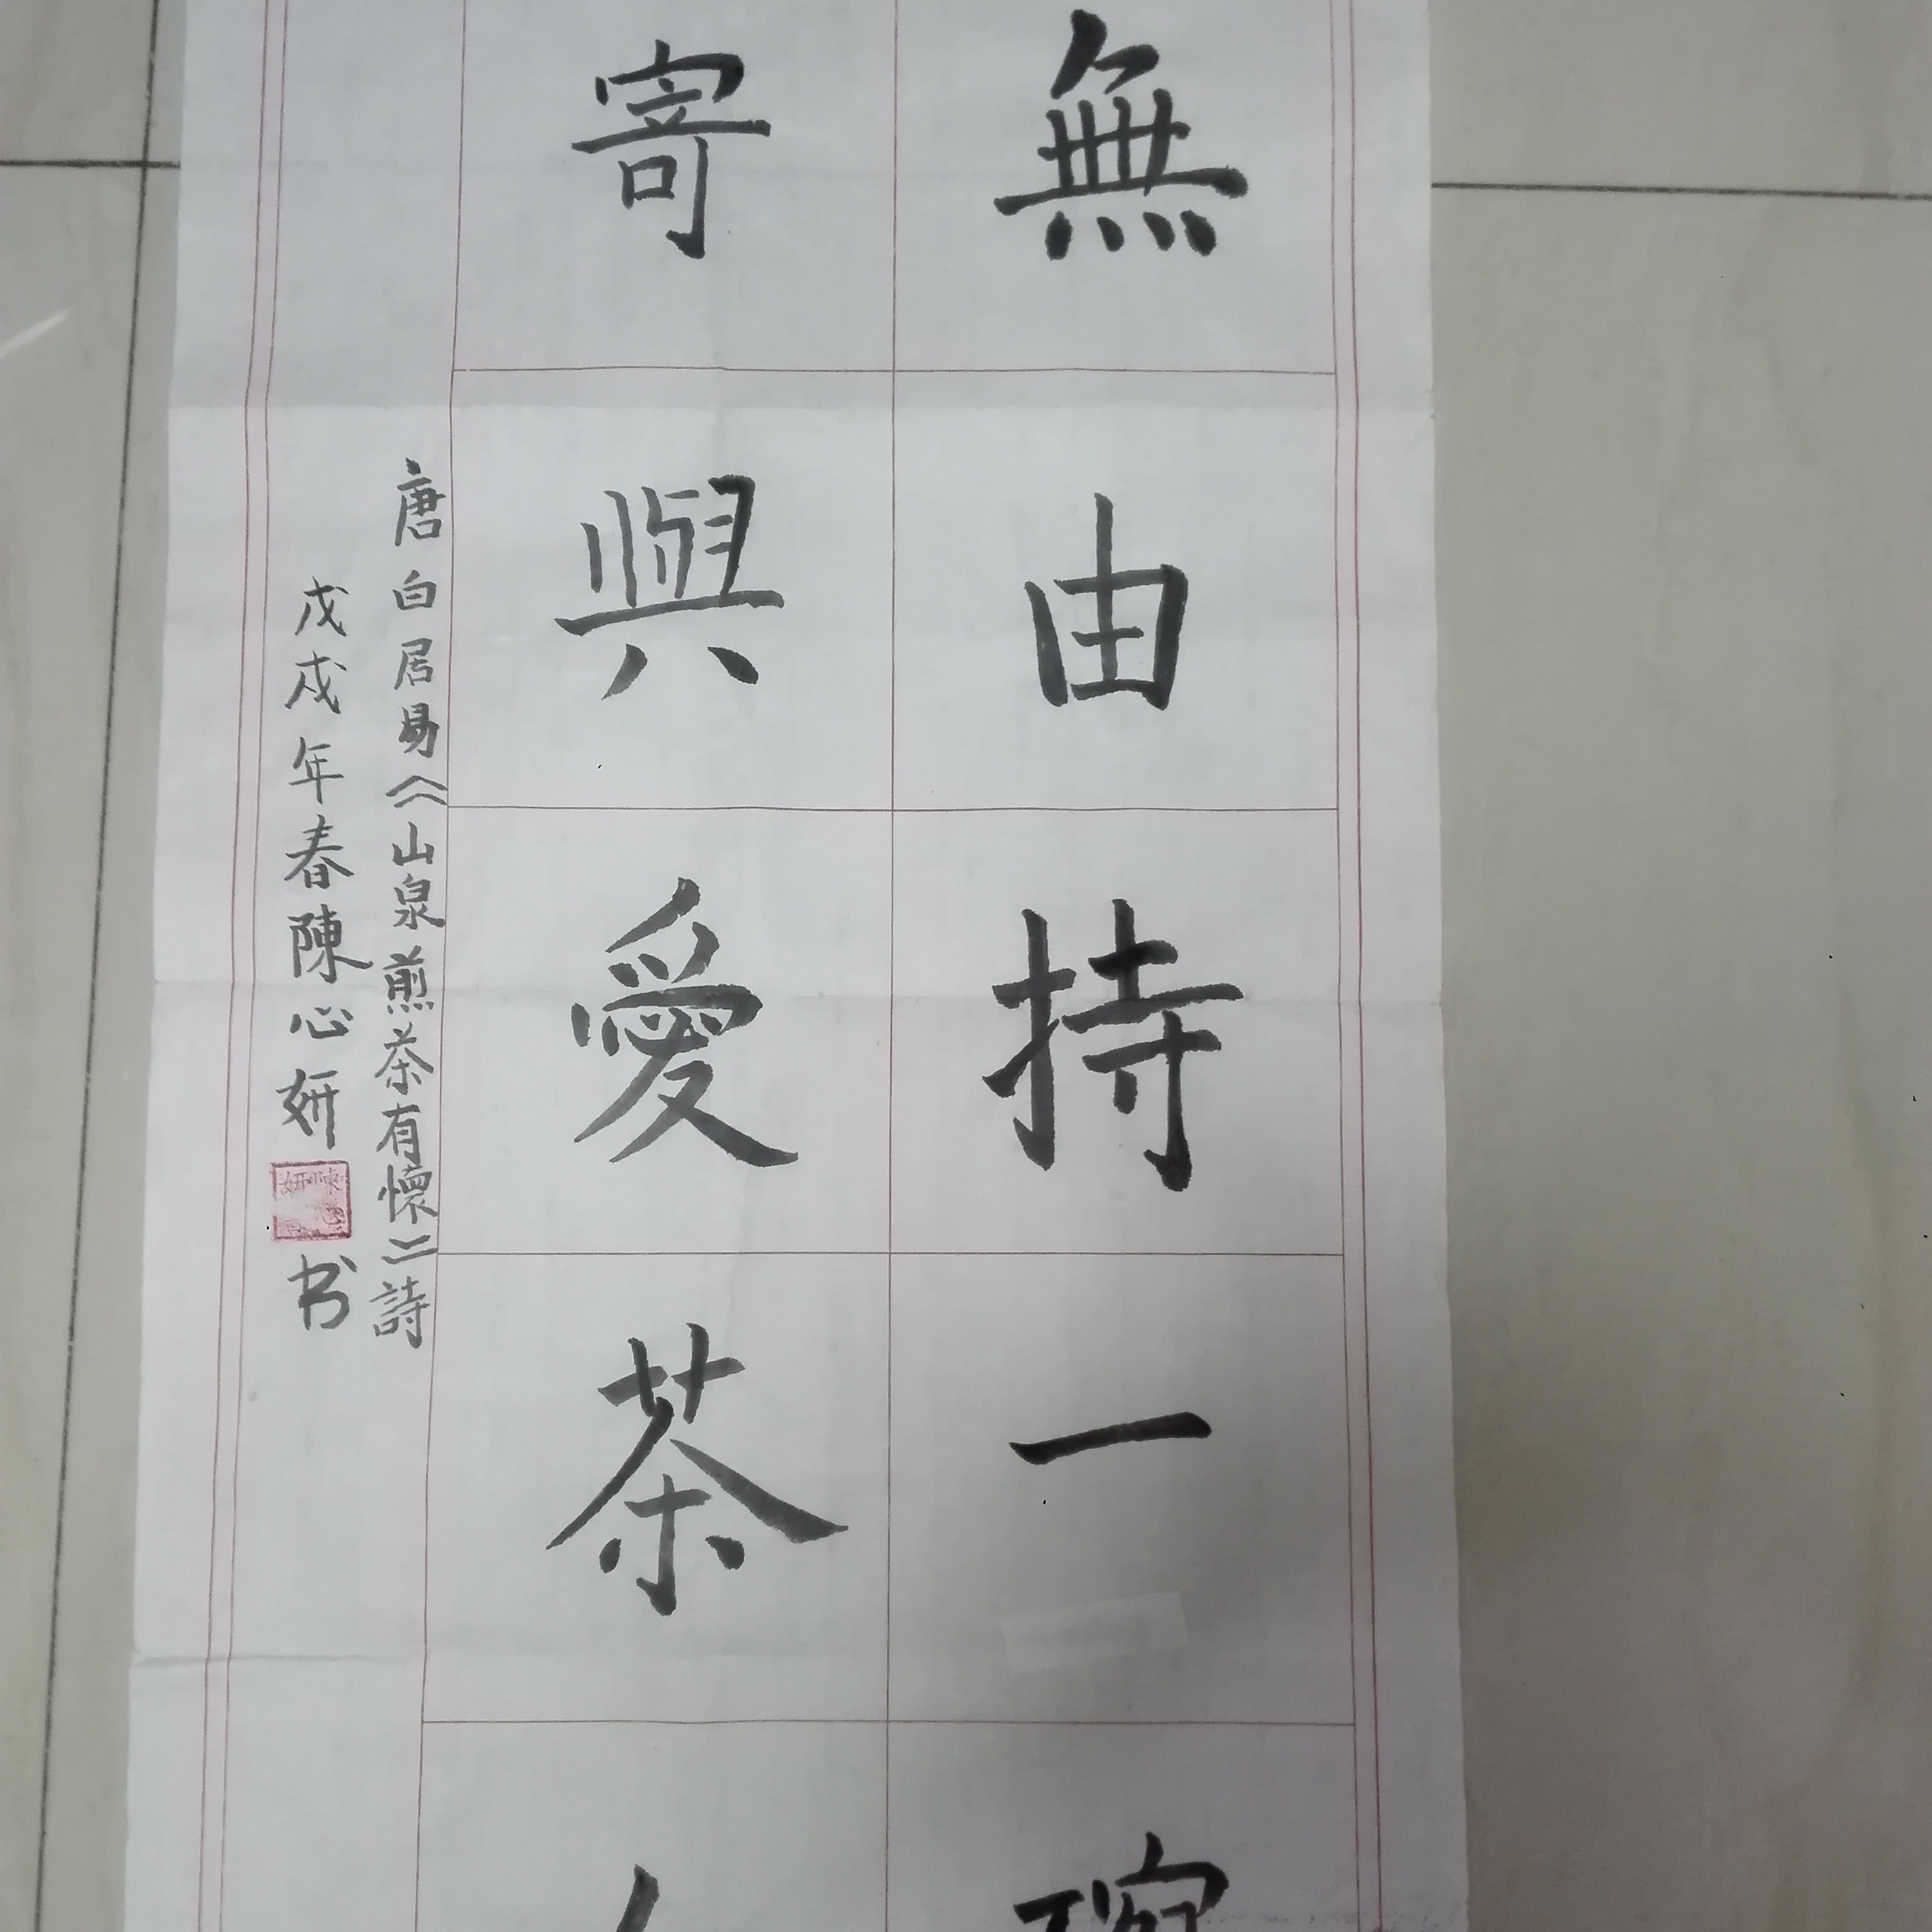 無由持一碗
寄與愛茶人
唐白居易《山泉煎茶有懷》詩
戊戌年春陳心妍书